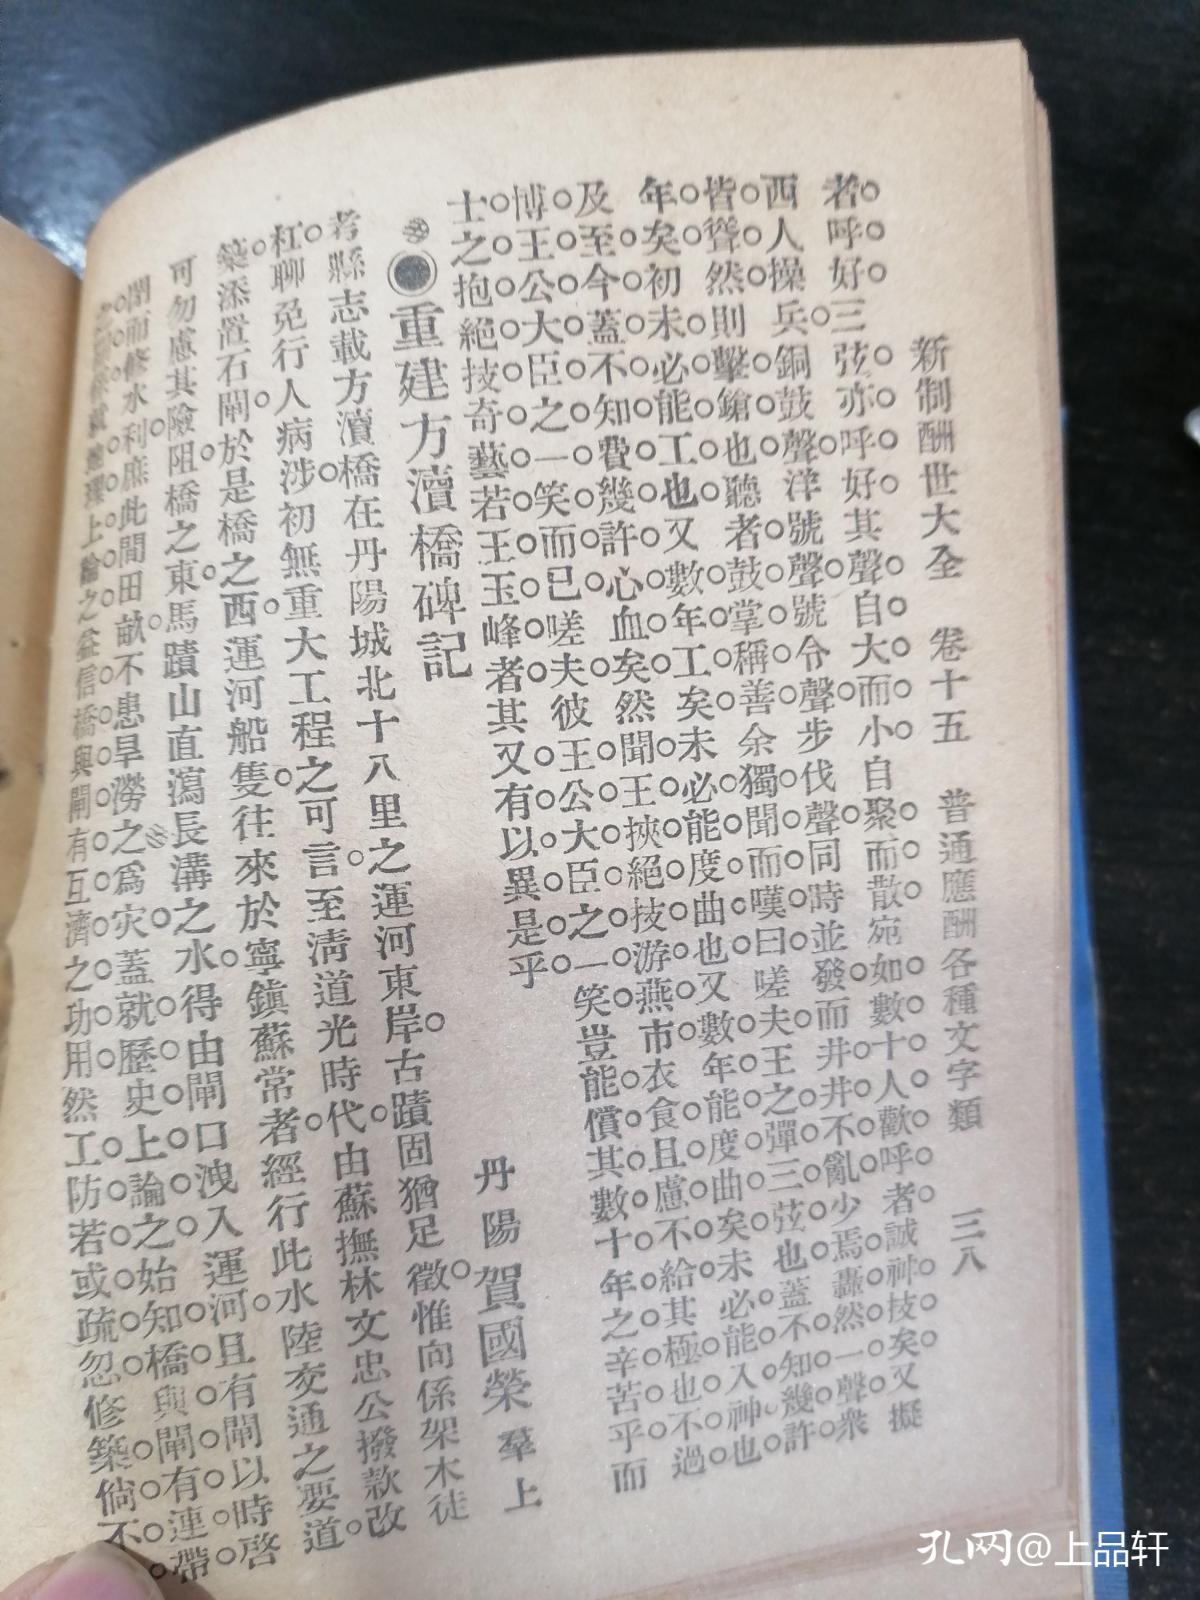 新制酬世大全　卷十五　普通應酬各種文字類　三八
者呼好三弦亦呼好其聲自大而小自聚而散宛如數十人歡呼者誠神技矣又擬
西人操兵銅鼓聲洋號聲號令聲步伐聲同時並發而井井不亂少焉轟然一聲衆
皆聳然則擊鎗也聽者鼓掌稱善余獨聞而嘆曰嗟夫王之彈三弦也蓋不知幾許
年矣初未必能工也又數年工矣未必能度曲也又數年能度曲矣未必能入神也
及至今蓋不知費幾許心血矣然聞王挾絕技游燕市衣食且慮不給其極也不過
博王公大臣之一笑而已嗟夫彼王公大臣之一笑豈能償其數十年之辛苦乎而
士之抱絕技奇藝若王玉峰者其又有以異是乎
◉重建方瀆橋碑記　丹陽賀國榮羣上
考縣志載方瀆橋在丹陽城北十八里之運河東岸古蹟固猶足徵惟向係架木徒
杠聊免行人病涉初無重大工程之可言至淸道光時代由蘇撫林文忠公撥款改
築添置石閘於是橋之西運河船隻往來於寧鎭蘇常者經行此水陸交通之要道
可勿慮其險阻橋之東馬蹟山直瀉長溝之水得由閘口洩入運河且有閘以時啓
閉而修水利庶此間田畝不患旱澇之爲灾蓋就歷史上論之始知橋與閘有連帶
之關係就地理上論之益信橋與閘有互濟之功用然工防若或疏忽修築倘不
孔网@上品轩